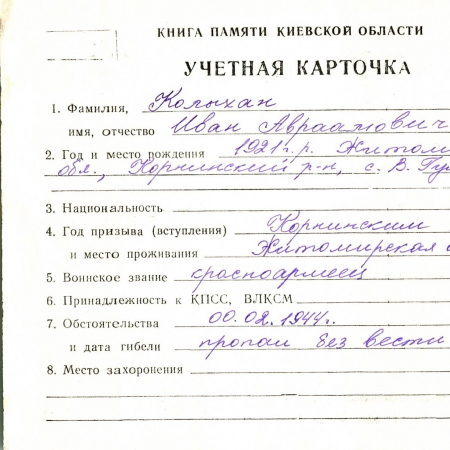 КНИГА ПАМЯТИ КИЕВСКОЙ ОБЛАСТИ
УЧЕТНАЯ КАРТОЧКА
1. Фамилия, Колыхан
имя, отчество Иван Авраамович
2. Год и место рождения 1921 г. р. Житом
обл., Корнинский р-н, с. В. Гу
3. Национальность
4. Год призыва (вступления) Корнинским
и место проживания Житомирская
5. Воинское звание красноармеец
6. Принадлежность к КПСС, ВЛКСМ
7. Обстоятельства 00.02.1944г.
и дата гибели пропал без вести
8. Место захоронения